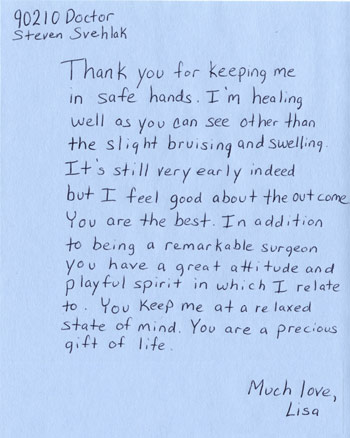 90210 Doctor
Steven Svehlak
Thank you for keeping me
in safe hands. I'm healing
well as you can see other than
the slight bruising and swelling.
It's still very early indeed
but I feel good about the outcome
You are the best. In addition
to being a remarkable surgeon
you have a great attitude and
playful spirit in which I relate
to. You keep me at a relaxed
state of mind. You are a precious
gift of life.
Much love,
Lisa